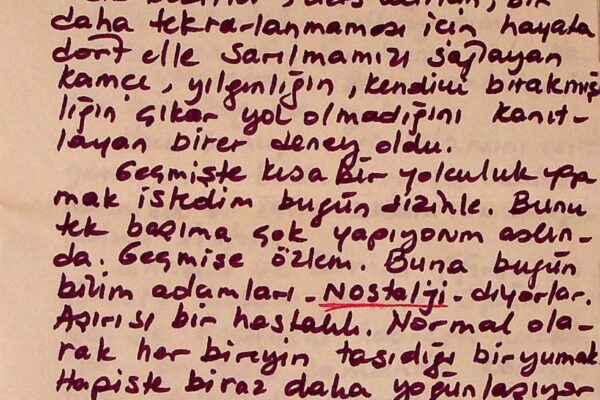 daha tekrarlanmaması için hayata
dört elle sarılmamızı sağlayan
kamçı, yılgınlığın, kendini bırakmış
lığın çıkar yol olmadığını kanıt-
layan birer deney oldu.
Geçmişte kısa bir yolculuk yap
mak istedim bugün sizinle. Bunu
tek başıma çok yapıyorum aslın-
da. Geçmişe özlem. Buna bugün
bilim adamları - Nostalji - diyorlar.
Aşırısı bir hastalık. Normal ola-
rak her bireyin taşıdığı bir yumak
Hapiste biraz daha yoğunlaşıyor